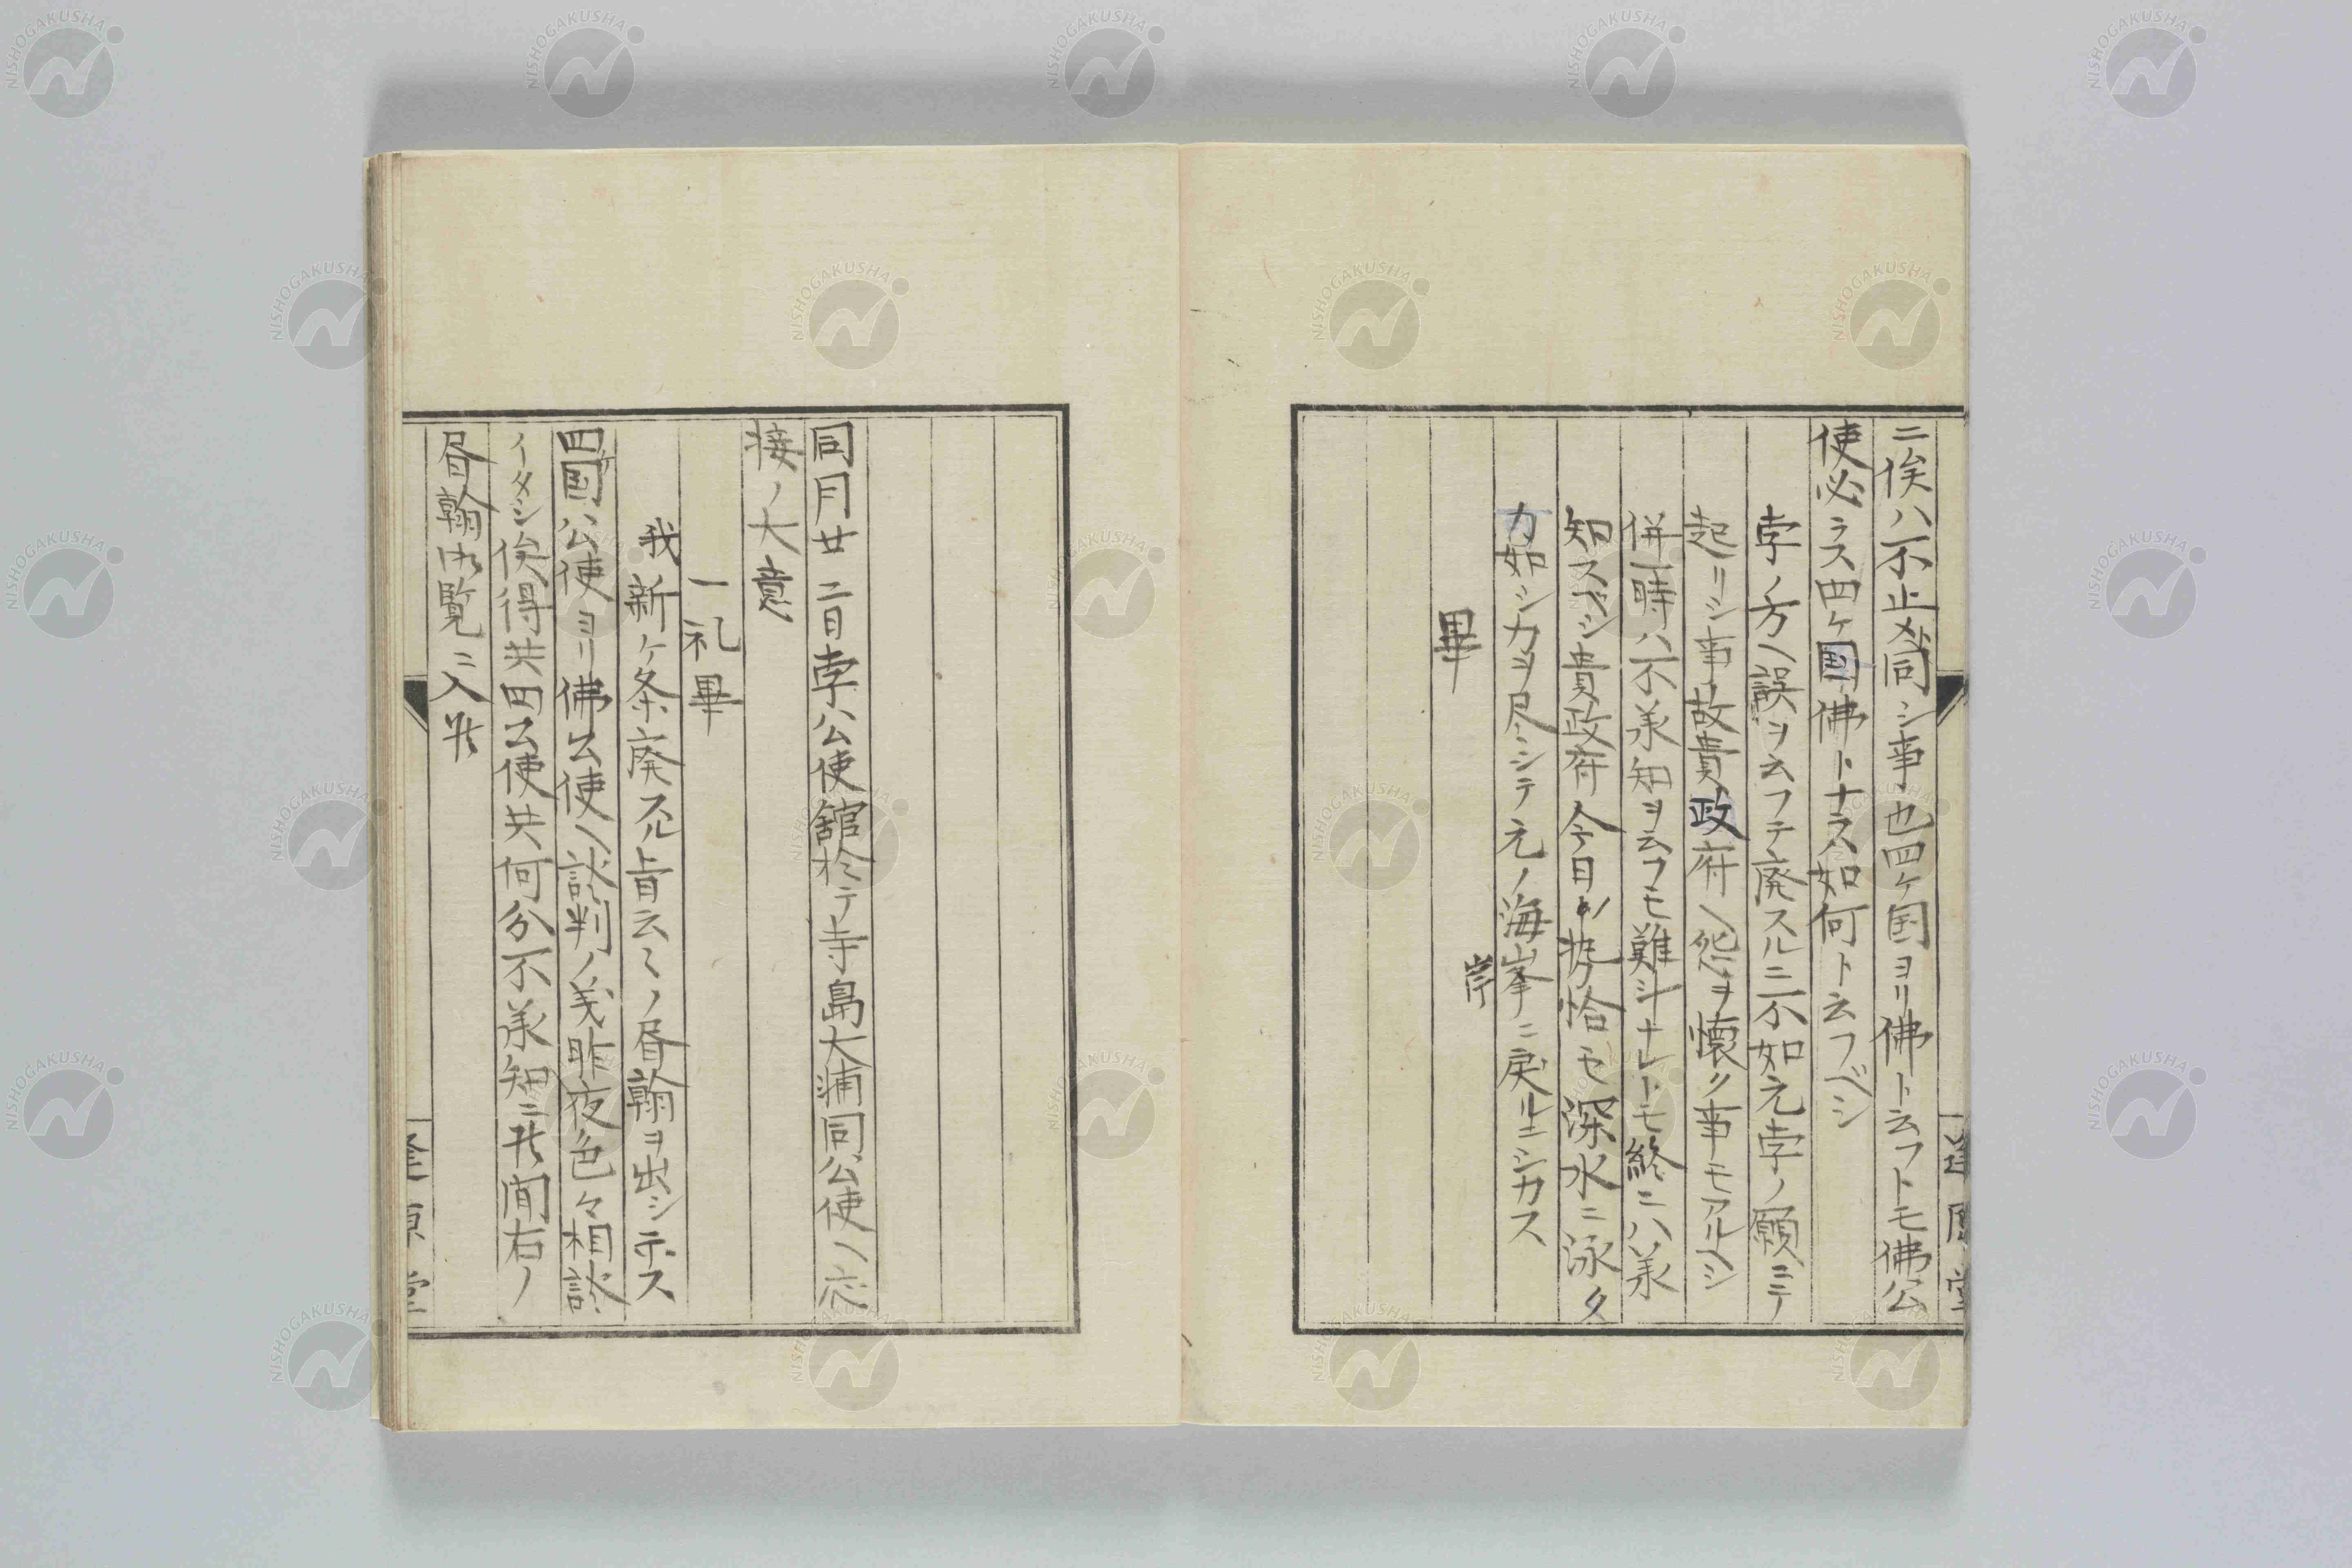 ニ俟ハ不止メ同シ事也四ケ国ヨリ佛ト云フトモ佛公
使必ラス四ケ国佛トナラハ如何ト云フベシ
孛ノ方ヘ誤ヲ云フテ廃スルニ不如元孛ノ願ニテ
起リシ事故貴政府ヘ怨ヲ懐ク事モアルヘシ
併一時ハ不承知ヲ云フモ難斗ナレトモ終ニハ承
知スベシ貴政府今日ノ勢恰モ深水ニ泳ク
カ如シ力ヲ尽シテ元ノ海岸ニ戻ルニシカス
岸
畢
同月廿二日孛公使舘於テ寺島大浦同公使ヘ応
接ノ大意
一礼畢
我新ケ条廃スル旨云々ノ昏翰ヲ出シテ示ス
四ケ国公使ヨリ佛公使ヘ談判ノ義昨夜色々相談
イタシ俟得共四公使共何分不承知ニ候間右ノ
昏翰御覧ニ入候
逢原堂
NISHOGAKUSHA